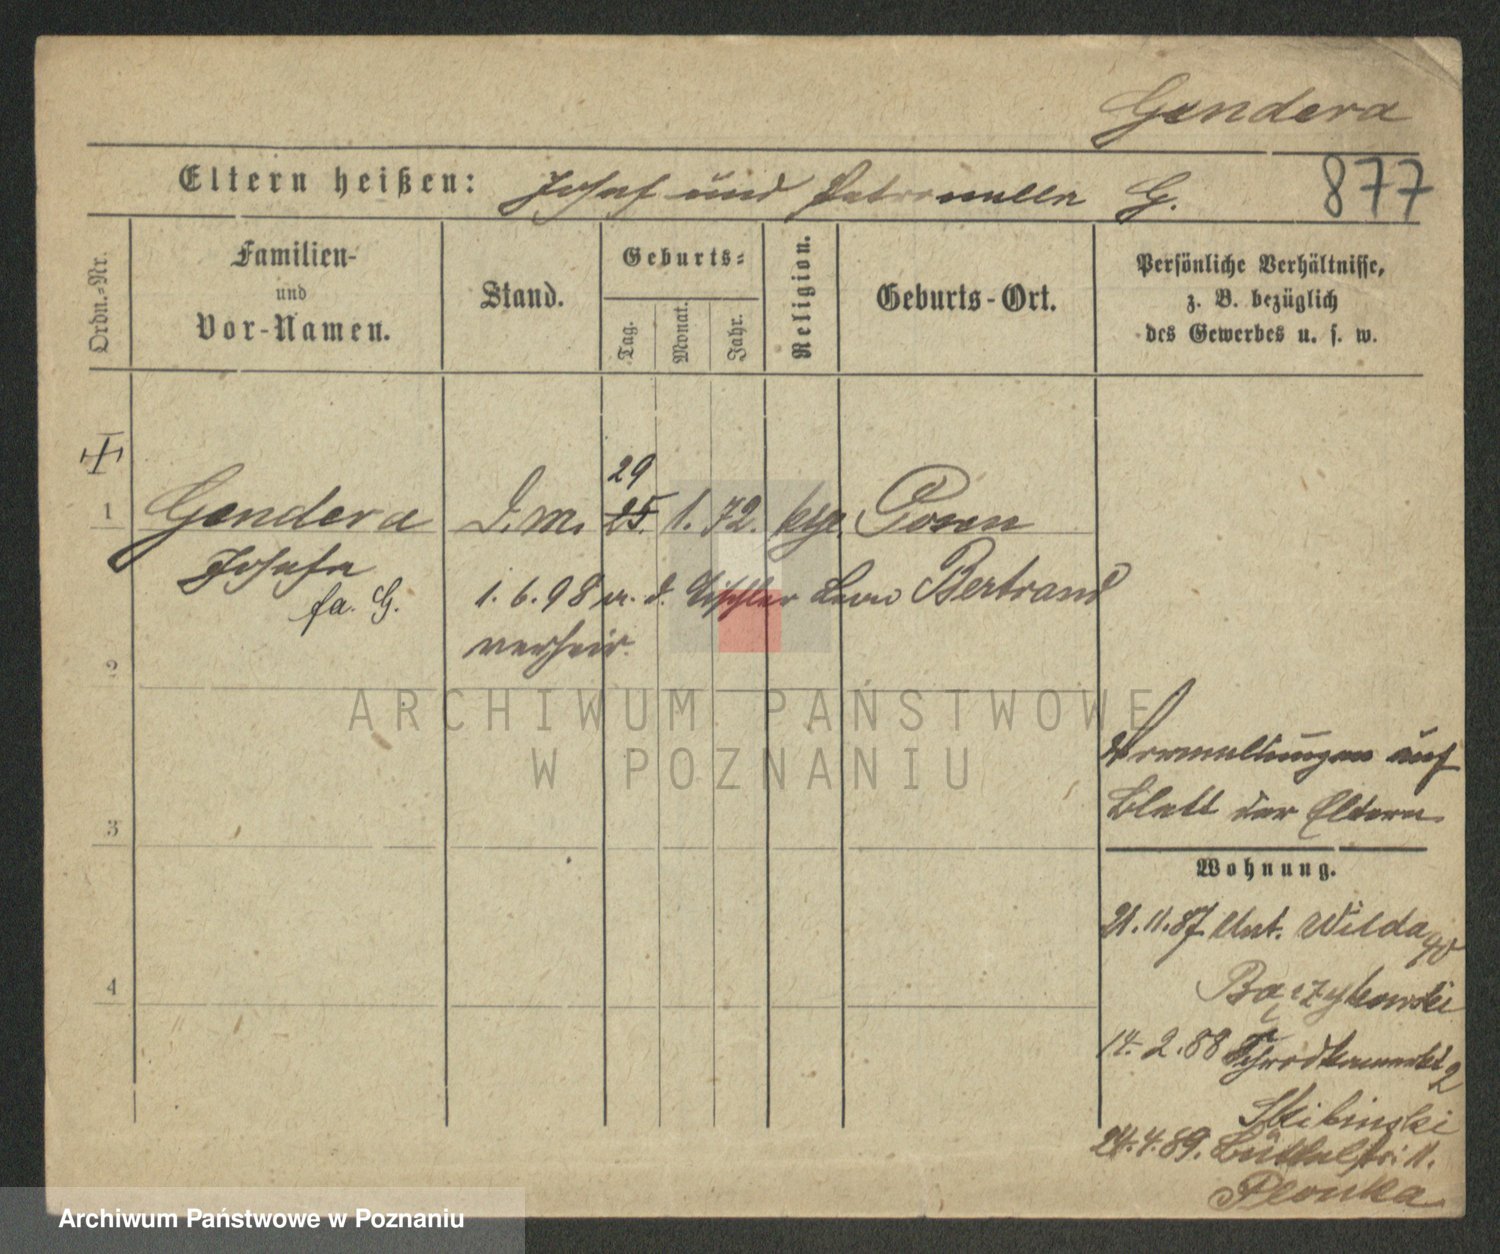 Gendera
Eltern heißen: Josef und Petronella G. 877
Ordn.-Nr.
Familien-
und
Vor-Namen.
Stand.
Geburts-
Tag.
Monat.
Jahr.
Religion.
Geburts-Ort.
Persönliche Verhältnisse,
z. B. bezüglich
des Gewerbes u. s. w.
29
1 Gendera D. m. 25. 1. 72. kgl. Posen
Josefa
fa. G.
1. 6. 98 m. d. Tischler Leon Bertrand
verheir.
2
ARCHIWUM PAŃSTWOWE
W POZNANIU
Vermerkungen auf
Blatt der Eltern.
3
Wohnung.
21.11.87. Unt. Wilda 40
Bączykowski
4
14. 2. 88 Schrodkamarkt 2
Skibinski
24.4.89. Büttelstr: 11.
Plonka
Archiwum Państwowe w Poznaniu